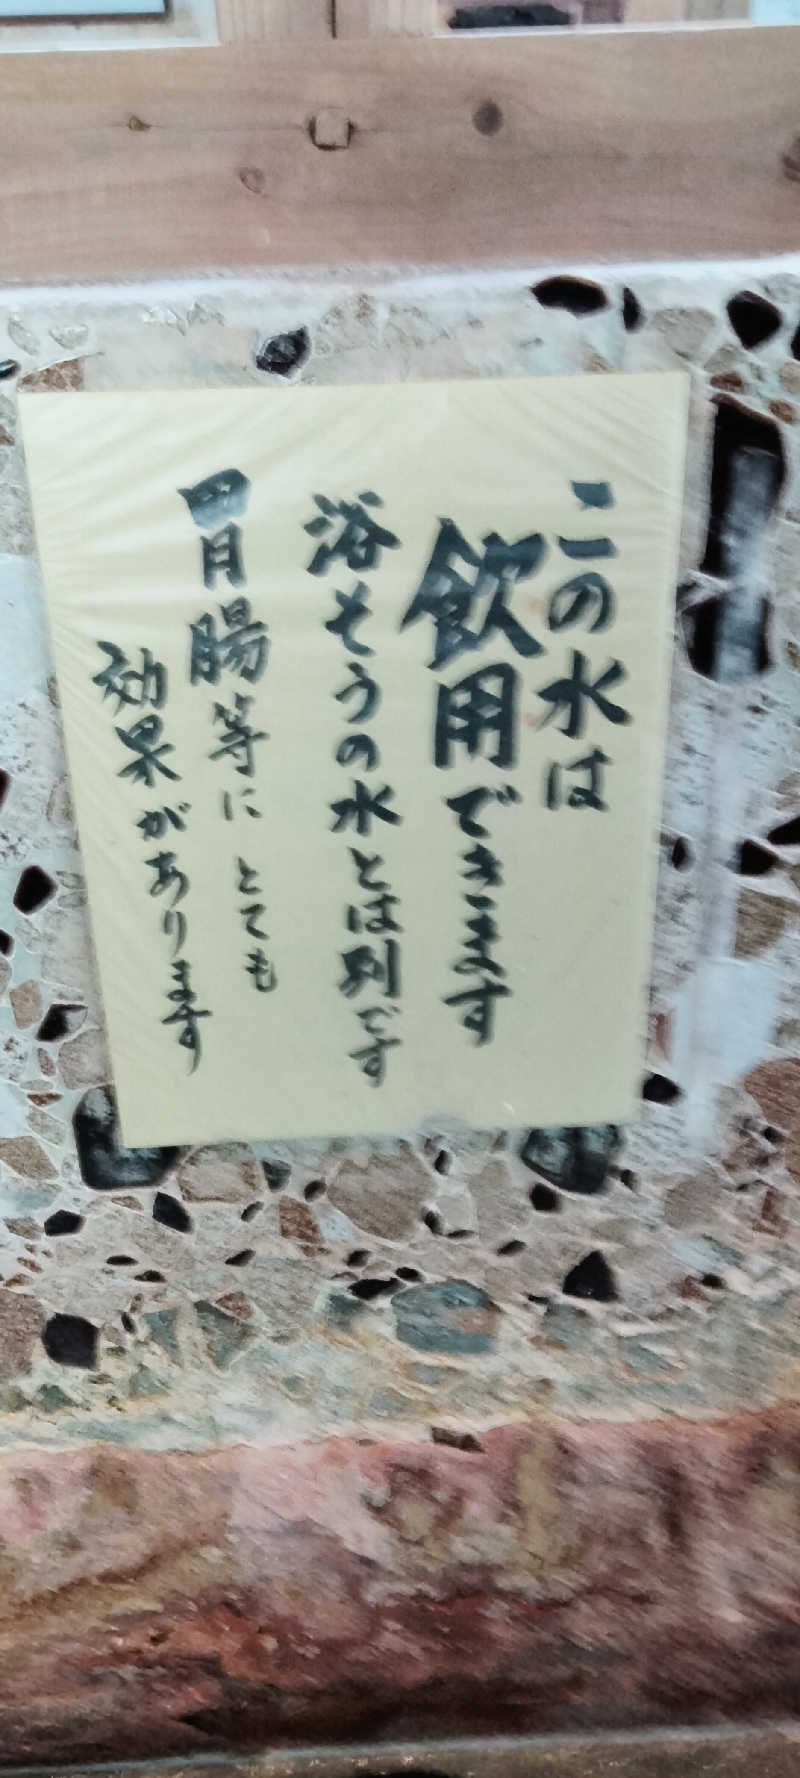 この水は
飲用できます
浴そうの水とは別です
胃腸等にとても
効果があります